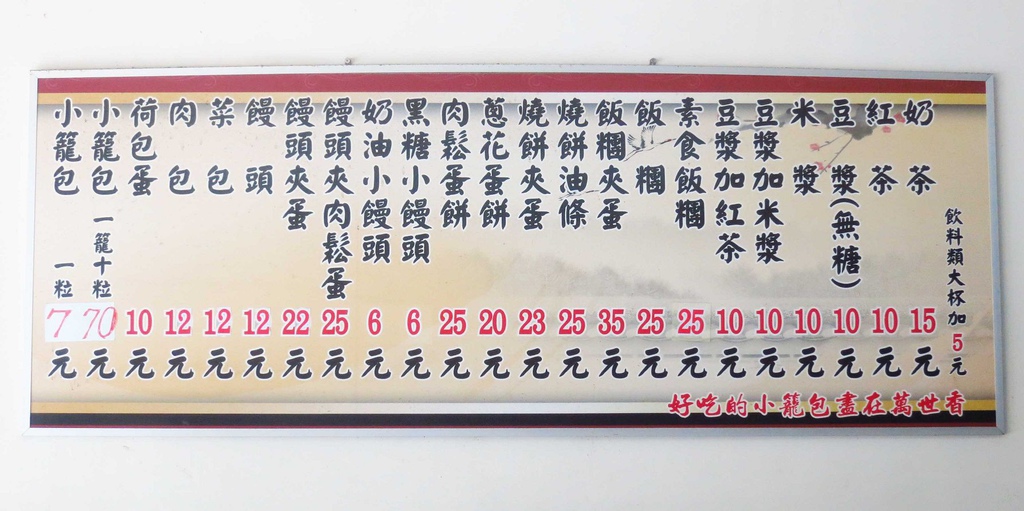 飲料類大杯加5元
奶茶 15元
紅茶 10元
豆漿(無糖) 10元
米漿 10元
豆漿加米漿 10元
豆漿加紅茶 10元
素食飯糰 25元
飯糰 25元
飯糰夾蛋 35元
燒餅油條 25元
燒餅夾蛋 23元
蔥花蛋餅 20元
肉鬆蛋餅 25元
黑糖小饅頭 6元
奶油小饅頭 6元
饅頭夾肉鬆蛋 25元
饅頭夾蛋 22元
饅頭 12元
菜包 12元
肉包 12元
荷包蛋 10元
小籠包 一籠十粒 70元
小籠包 一粒 7元
好吃的小籠包盡在萬世香